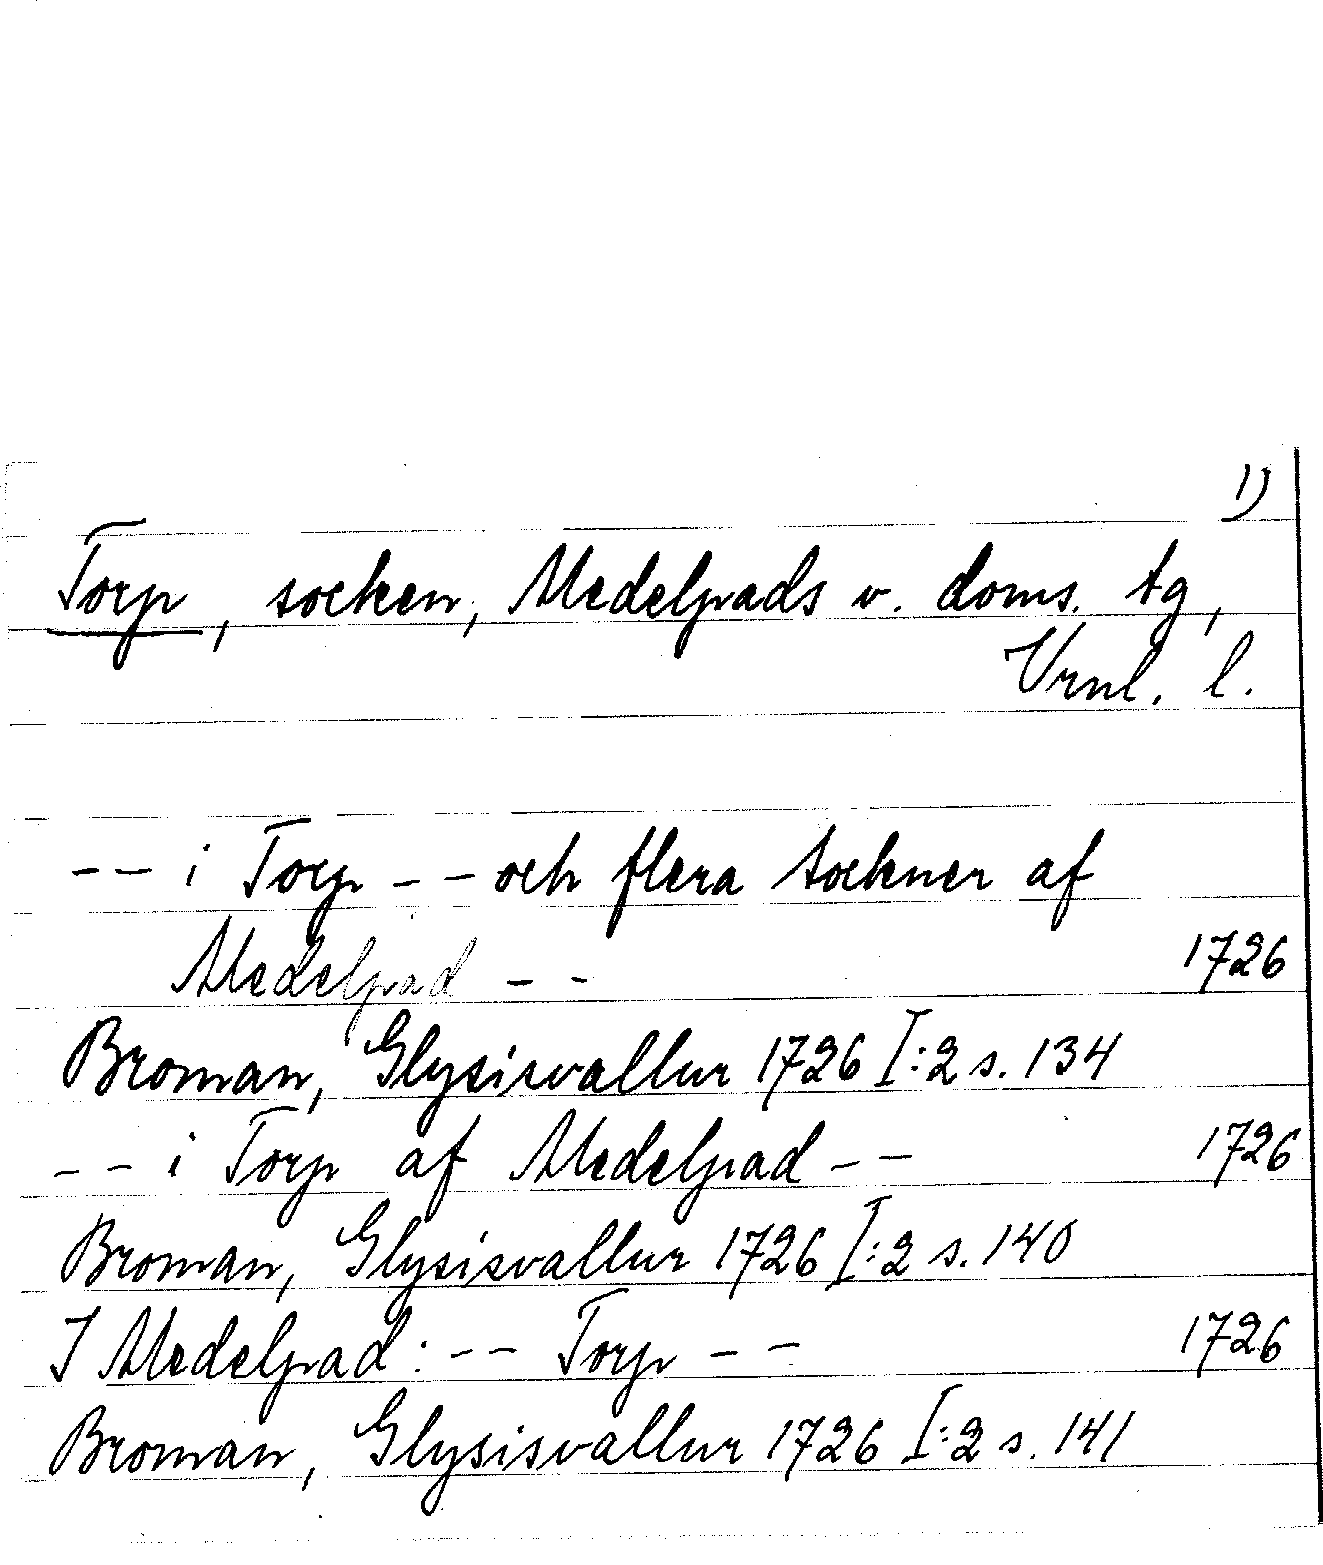 1)
Torp, socken, Medelpads v. doms. tg,
Vrnl. l.
-- i Torp -- och flera Sockner af
Medelpad -- 1726
Broman, Glysisvallur 1726 I:2 s. 134
-- i Torp af Medelpad -- 1726
Broman, Glysisvallur 1726 I:2 s. 140
I Medelpad: -- Torp -- 1726
Broman, Glysisvallur 1726 I:2 s. 141